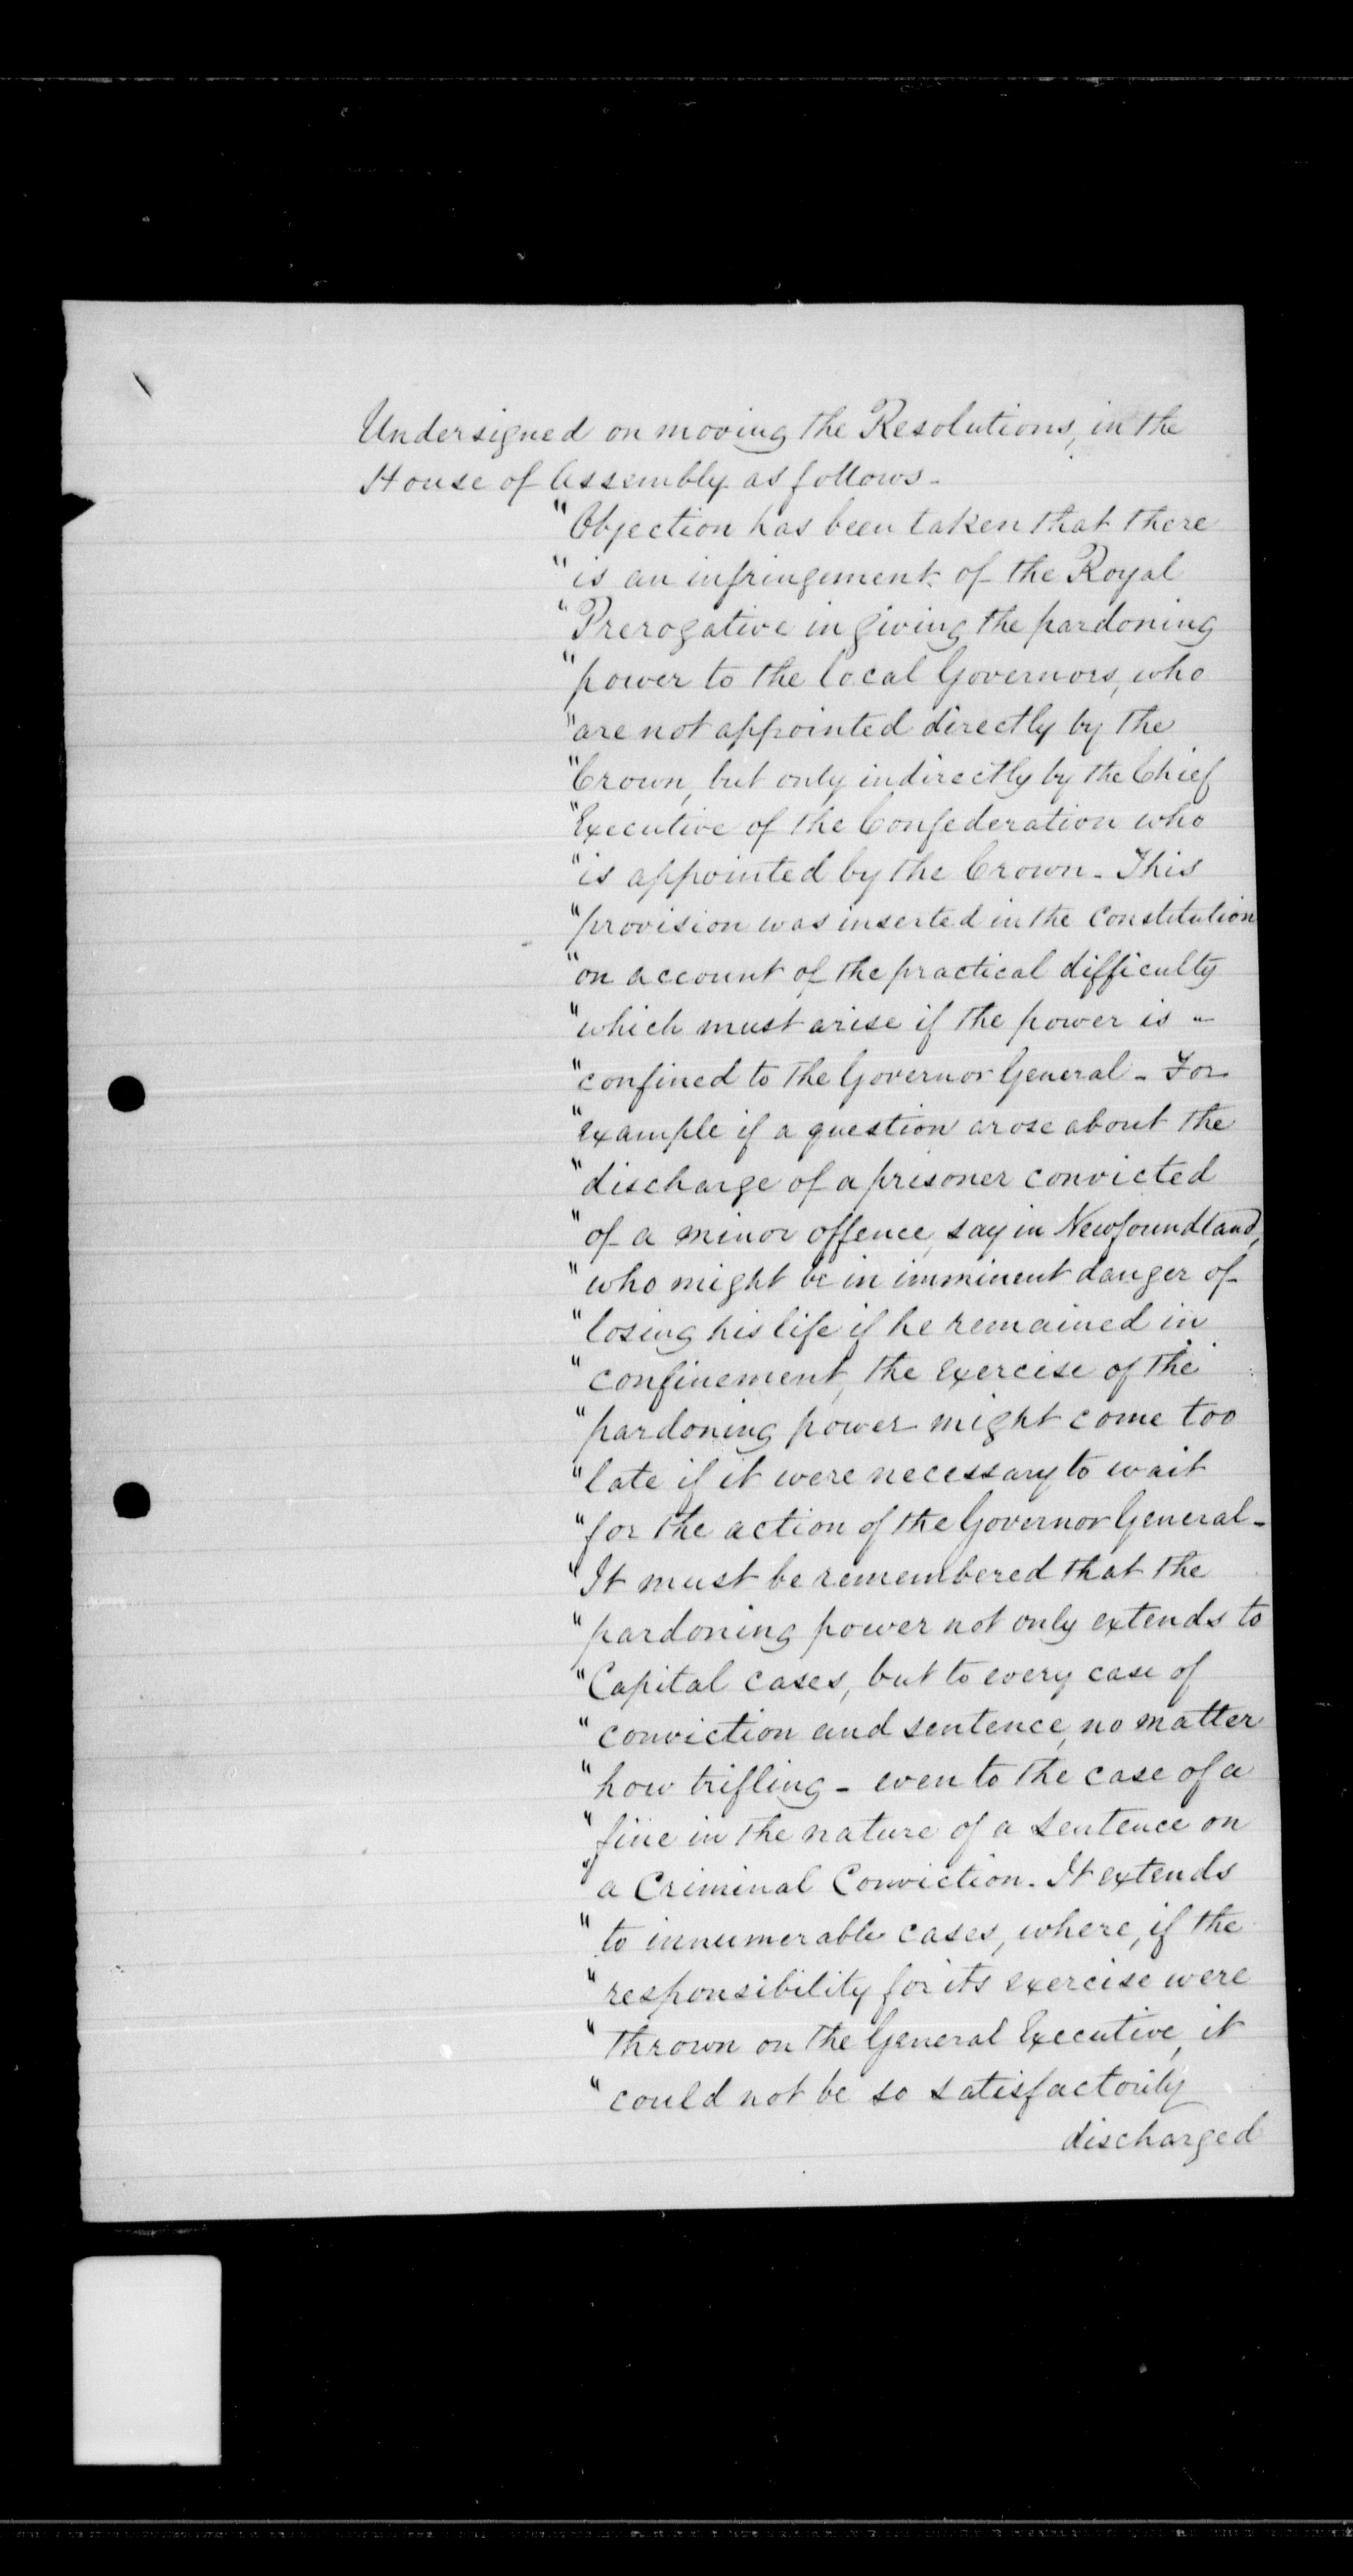 Undersigned on moving the Resolutions, in the
House of Assembly as follows -
"Objection has been taken that there
"is an infringement of the Royal
"Prerogative in giving the pardoning
"power to the local Governors, who
"are not appointed directly by the
"Crown, but only indirectly by the Chief
"Executive of the Confederation who
"is appointed by the Crown - This
"provision was inserted in the Constitution
"on account of the practical difficulty
"which must arise if the power is -
"confined to the Governor General - For
"example if a question arose about the
"discharge of a prisoner convicted
"of a minor offence, say in Newfoundland,
"who might be in imminent danger of
"losing his life if he remained in
"confinement, the exercise of the
"pardoning power might come too
"late if it were necessary to wait
"for the action of the Governor General -
"It must be remembered that the
"pardoning power not only extends to
"Capital cases, but to every case of
"conviction and sentence, no matter
"how trifling - even to the case of a
"fine in the nature of a sentence on
"a Criminal Conviction. It extends
"to innumerable cases, where, if the
"responsibility for its exercise were
"thrown on the General Executive, it
"could not be so satisfactorily
discharged